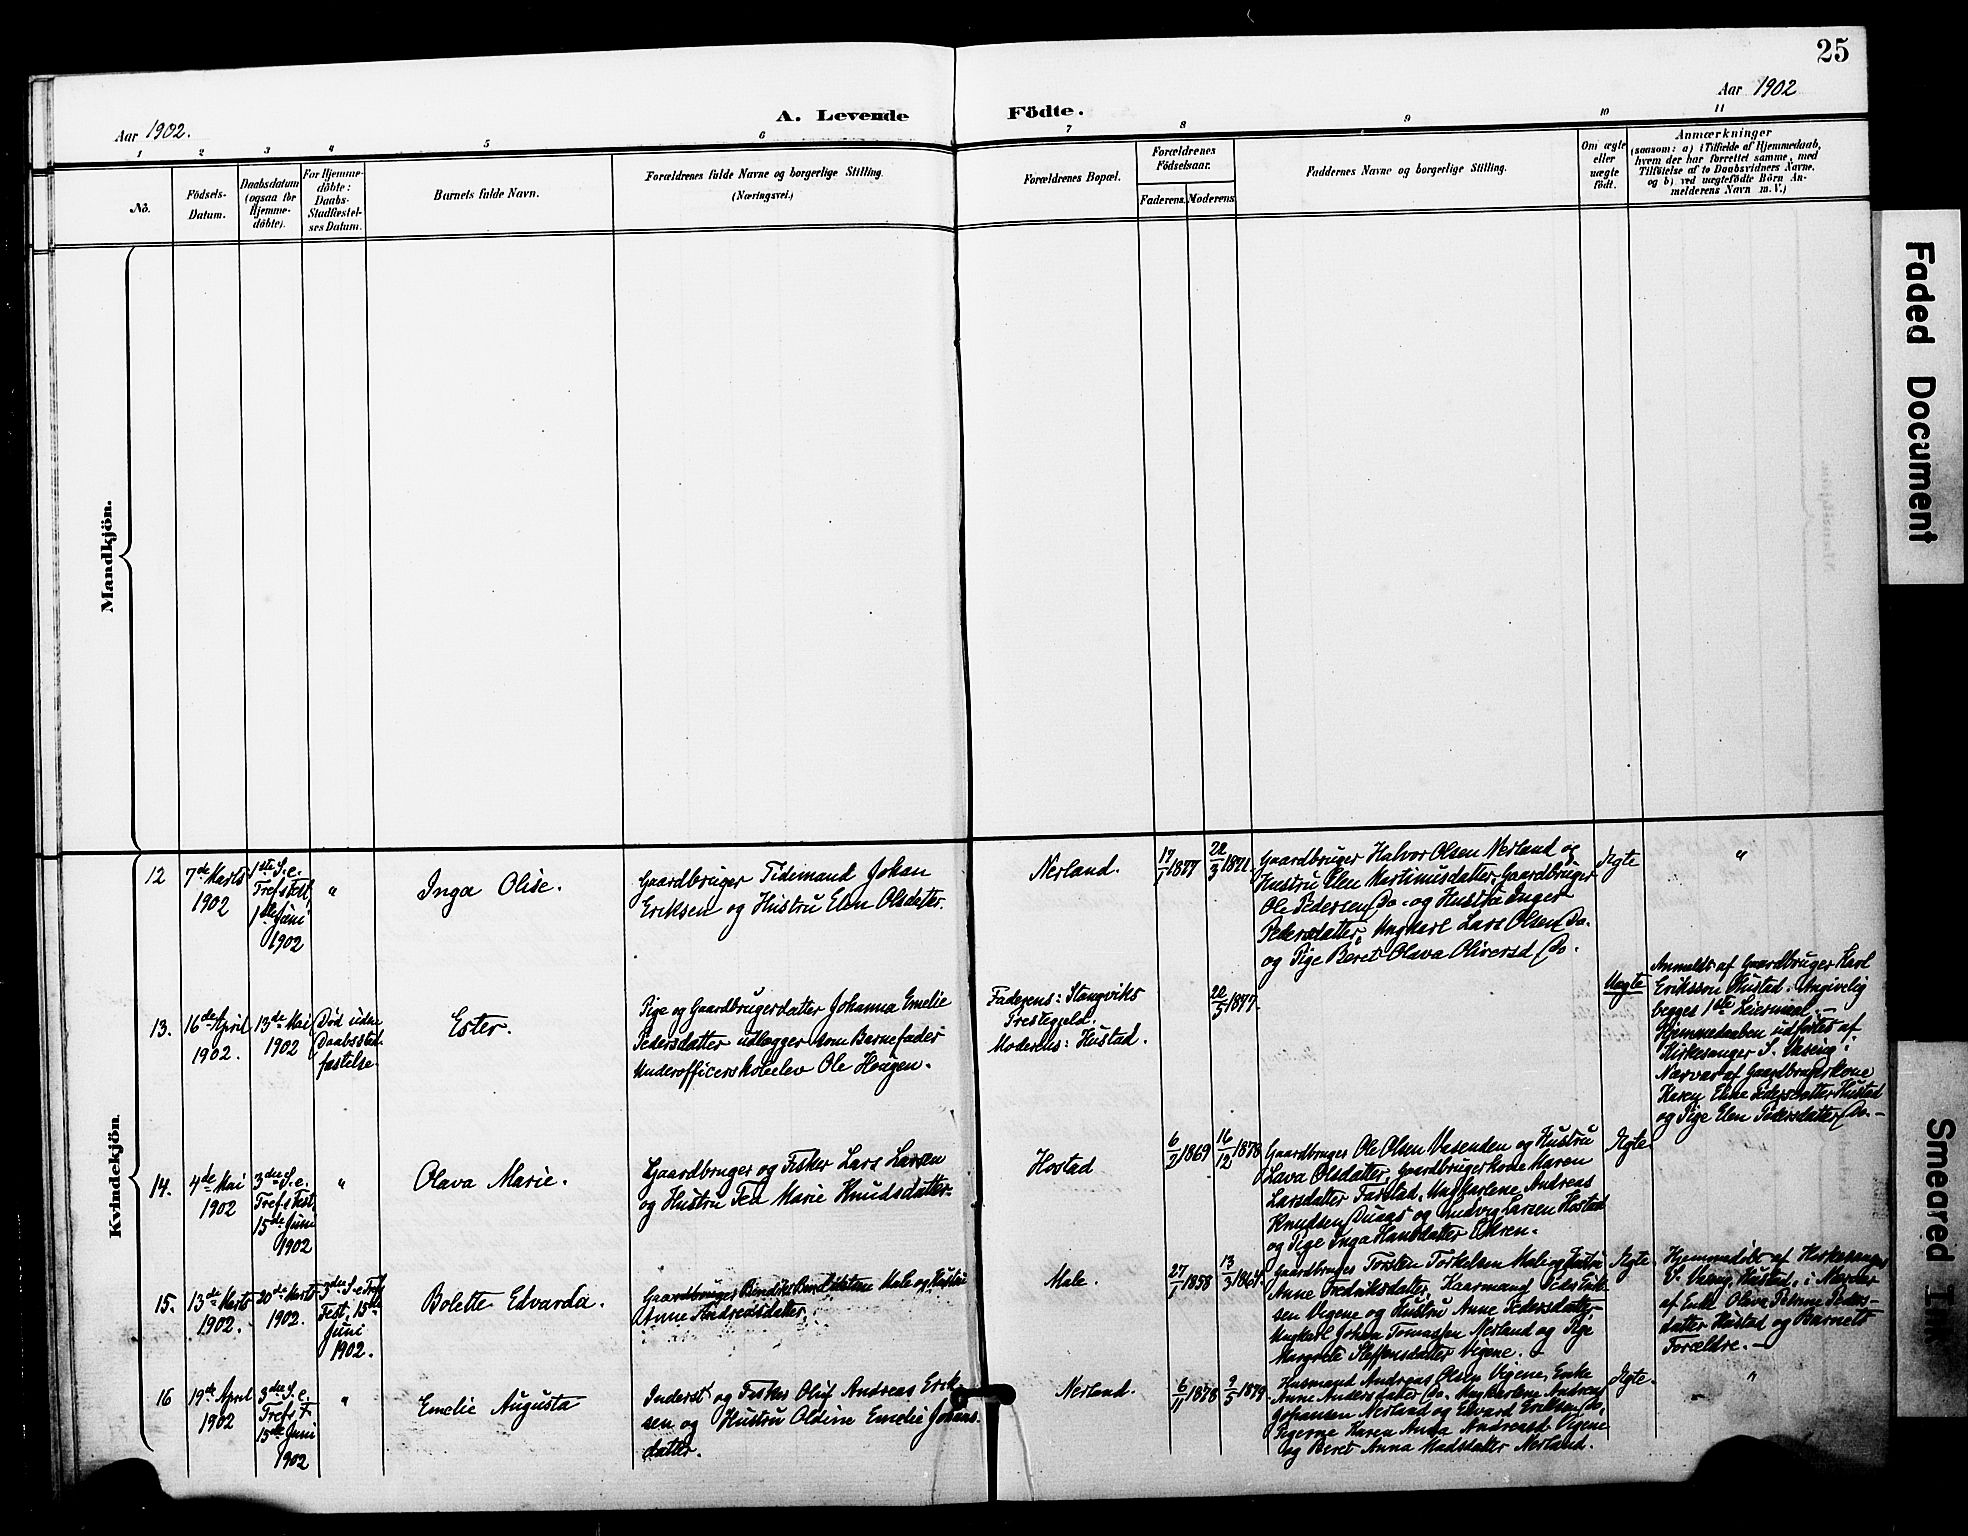 25
Aar 1902
Aar 1902.
A. Levende
Födte.
1 2 3 4 5 6 7 8 9 10 11
No.
Födsels-
Datum.
Daabsdatum
(ogsaa for
Hjemme-
döbte).
For Hjemme-
döbte:
Daabs-
Stadfæstel-
ses Datum.
Barnets fulde Navn.
Forældrenes fulde Navne og borgerlige Stilling.
(Næringsvei.)
Forældrenes Bopæl.
Forældrenes
Födselsaar.
Faderens. Moderens
Faddernes Navne og borgerlige Stilling.
Om ægte
eller
uægte
födt.
Anmærkninger
(saasom: a) i Tilfælde af Hjemmedaab,
hvem der har forrettet samme, med
Tilföielse af to Daabsvidners Navne.
og b) ved uægtefödte Börn An-
melderens Navn m. V.)
Mandkjön.
Kvindekjön.
12
7de Marts
1902
1ste S. e.
Tref. Fest,
1ste Juni
1902
"
Inga Olise.
Gaardbruger Tidemand Johan
Eriksen og Hustru Elen Olsdatter.
Nerland.
17/1 1877
22/3 1871.
Gaardbruger Halvor Olsen Nerland og
Hustru Elen Martinusdatter, Gaardbruger
Ole Pedersen Do. og Hustru Inger
Pedersdatter, Ungkarl Lars Olsen Do.
og Pige Beret Olava Oliversd. Do.
Ægte
"
13.
16de April
1902.
13de Mai
1902
Død uden
Daabsstad-
fæstelse.
Ester.
Pige og Gaardbrugerdatter Johanna Emelie
Pedersdatter udlægger som Barnefader
Underofficerskoleelev Ole Hougen.
Faderens: Stangviks
Prestegjeld.
Moderens: Hustad.
/5 1877.
Uægte
Anmeldt af Gaardbruger Karl
Eriksson Hustad. Angivelig
begges 1ste Leiermaal.
Hjemmedaaben udførtes af
Kirkesanger S. Vaseng i
Nærvær af Gaardbrugerkone
Karen Eline Pedersdatter Hustad
og Pige Elen Pedersdatter Do.
14.
4de Mai
1902
3die S. e.
Tref. Fest,
15de Juni
1902
"
Olava Marie.
Gaardbruger og Fisker Lars Larsen
og Hustru Tea Marie Knudsdatter.
Hostad
6/2 1869
16/12 1878
Gaardbruger Ole Olsen Vasenden og Hustru
Lava Olsdatter, Gaardbrugerkone Maren
Larsdatter Farstad, Ungkarlene Andreas
Knudsen og Ludvig Larsen Hostad
og Pige Inga Hansdatter
Ægte.
15.
13de Marts
1902.
20de Marts
1902.
3die S. e. Tref.
Fest, 15de
Juni
1902.
Bolette Edvarda.
Gaardbruger Male og Hustru
Anne Andreasdatter.
Male.
27/1 1858
13/3 1864.
Gaardbruger Torsten Torkelsen Male og Hustru
Anne Fredriksdatter, Kaarmand
Vigene og Hustru Anne Pedersdatter
Ungkarl Johan Tomassen Nerland og Pige
Margrete Steffensdatter Vigene.
Ægte.
Hjemmedøbt af Kirkesanger
S. Vaseng, Hustad, i Nærvær
af Enke Olava Petrine Peders-
datter Hustad og Barnets
Forældre.
16
19de April
1902
3die S. e.
Tref. F.
15de Juni
1902
"
Emelie Augusta
Inderst og Fisker Oluf Andreas Erik-
sen og Hustru Oldine Emelie Johans-
datter.
Nerland.
6/11 1878
9/5 1879.
Husmand Andreas Olsen Vigene, Enke
Anne Andersdatter Do. Ungkarlene Andreas
Johansen Nerland og Edvard Eriksen Do.
Pigerne Karen Anna Andreasd. Vigene
og Beret Anna Madsdatter Nerland.
Ægte.
"
Faded Document
Smeared Ink